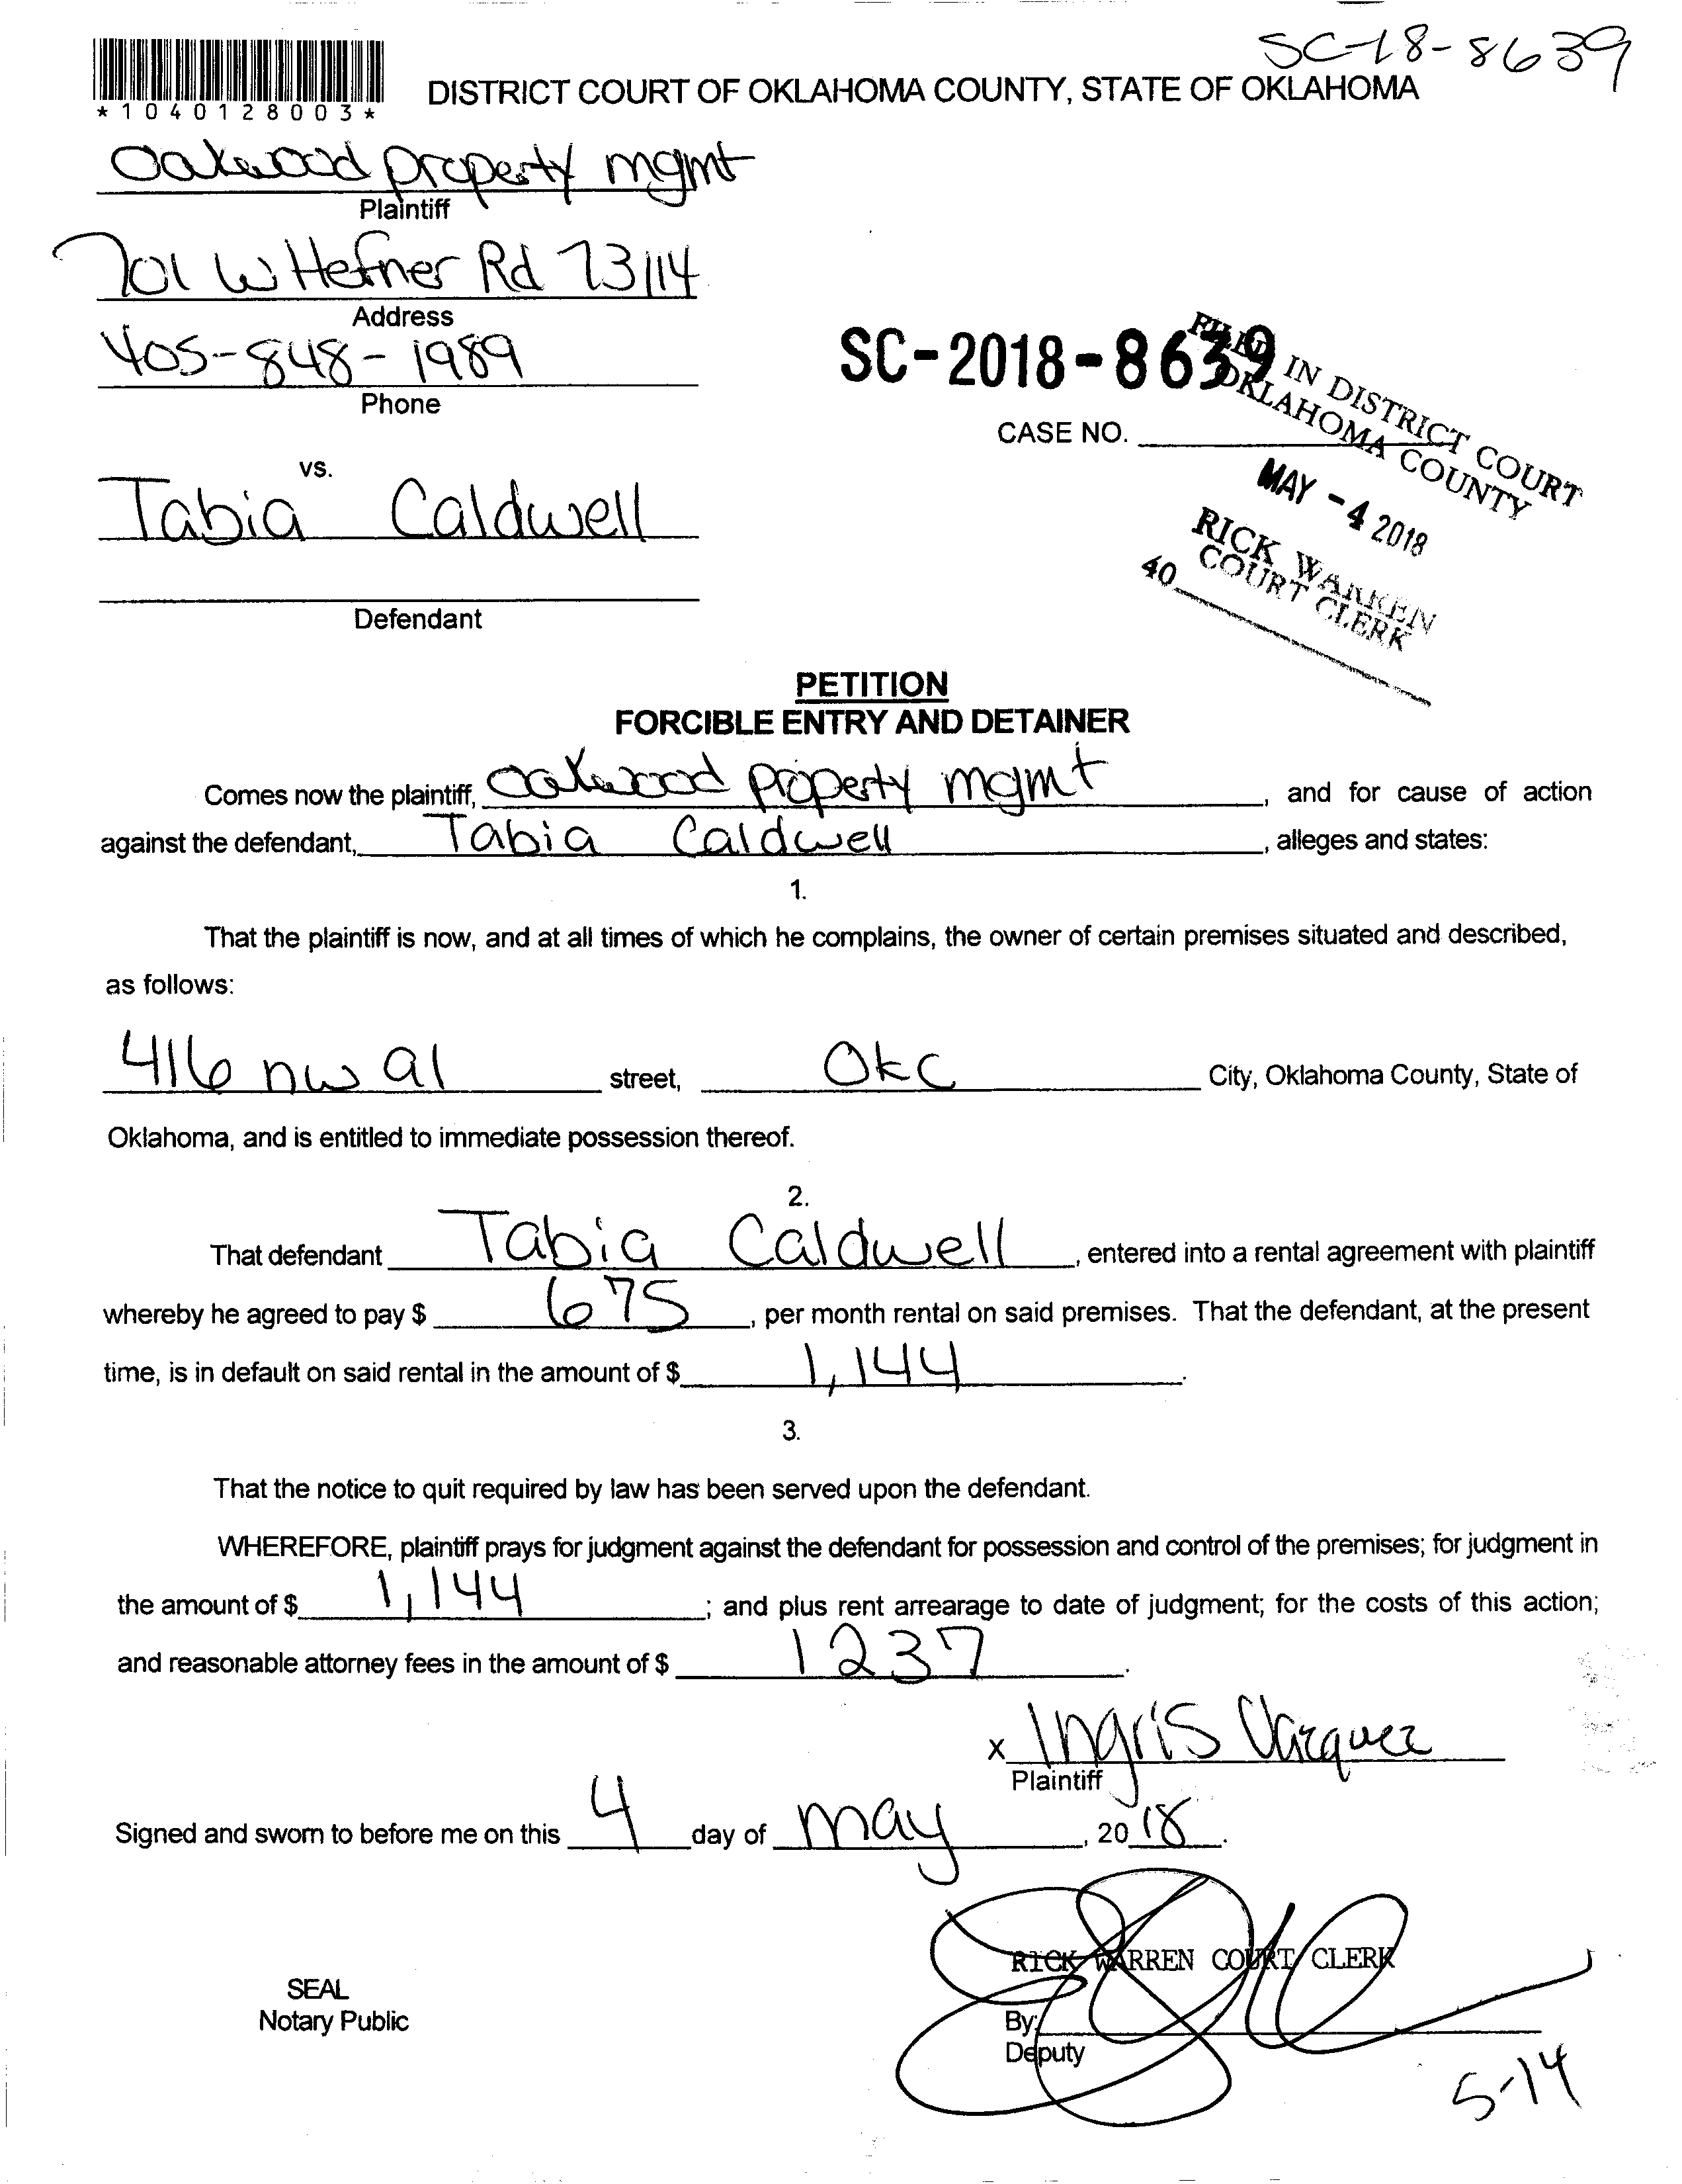 SC-18-8639
*1040128003*
DISTRICT COURT OF OKLAHOMA COUNTY, STATE OF OKLAHOMA
Oakwood property mgmt
Plaintiff
701 W Hefner Rd 73114
Address
405-848-1989
Phone
SC-2018-8639
CASE NO.
FILED IN DISTRICT COURT
OKLAHOMA COUNTY
MAY -4 2018
RICK WARREN
COURT CLERK
40
vs.
Tabia Caldwell
Defendant
PETITION
FORCIBLE ENTRY AND DETAINER
Comes now the plaintiff, Oakwood property mgmt, and for cause of action
against the defendant, Tabia Caldwell, alleges and states:
1.
That the plaintiff is now, and at all times of which he complains, the owner of certain premises situated and described,
as follows:
416 nw 91 street, OKC City, Oklahoma County, State of
Oklahoma, and is entitled to immediate possession thereof.
2.
That defendant Tabia Caldwell, entered into a rental agreement with plaintiff
whereby he agreed to pay $ 675, per month rental on said premises. That the defendant, at the present
time, is in default on said rental in the amount of $ 1,144.
3.
That the notice to quit required by law has been served upon the defendant.
WHEREFORE, plaintiff prays for judgment against the defendant for possession and control of the premises; for judgment in
the amount of $ 1,144; and plus rent arrearage to date of judgment; for the costs of this action;
and reasonable attorney fees in the amount of $ 1237.
x Ingris Vazquez
Plaintiff
Signed and sworn to before me on this 4 day of may, 2018.
RICK WARREN COURT CLERK
SEAL
Notary Public
By:
Deputy
5-14